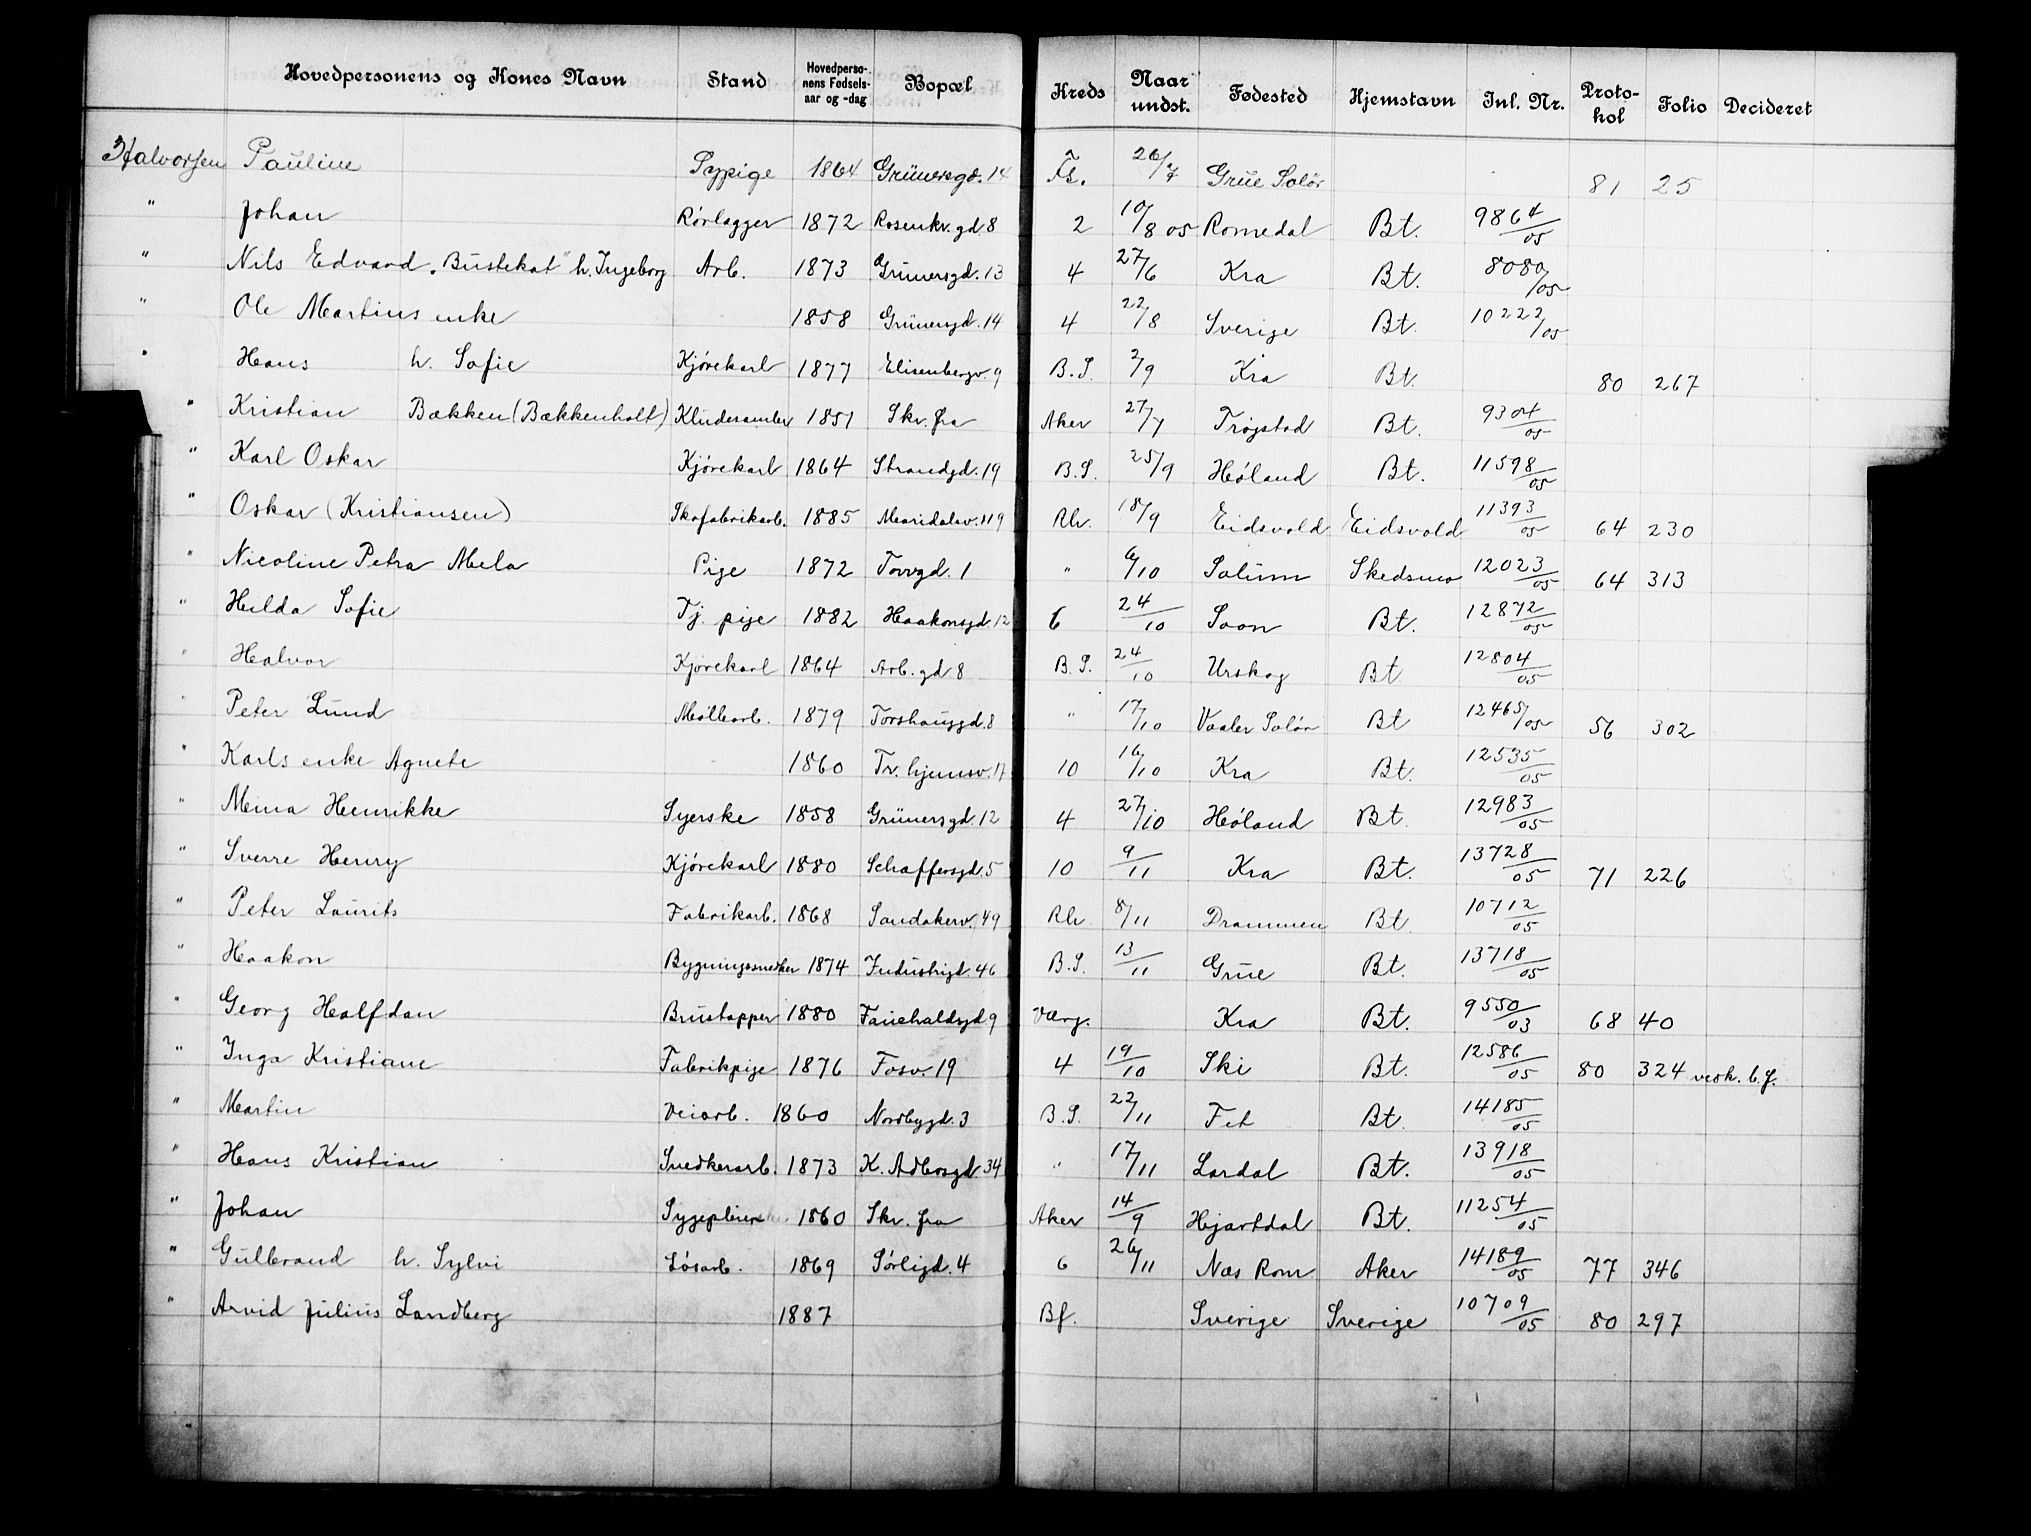 Hovedpersonens og Kones Navn Stand Hovedpersonens Fødselsaar og -dag Bopæl Kreds Naar undst. Fødested Hjemstavn Inl. Nr. Protokol Folio Decideret
Halvorsen Pauline Sypige 1864 Grünersgd. 14 Fs. 26/7 Grue Solør 81 25
" Johan Rørlægger 1872 Rosenkr. gd 8 2 10/8 05 Romedal Bt. 9864/05
" Nils Edvard "Bustekat" h. Ingeborg Arb. 1873 Grünersgd. 13 4 27/6 Kra Bt. 8080/05
" Ole Martins enke 1858 Grünersgd. 14 4 22/8 Sverige Bt. 10222/05
" Hans h. Sofie Kjørekarl 1877 Elisenbergv. 9 B.S. 2/9 Kra Bt. 80 267
" Kristian Bækken (Bækkenholt) Kludesamler 1851 Skr. fra Aker 27/7 Trøjstad Bt. 9304/05
" Karl Oskar Kjørekarl 1864 Strandgd. 19 B.S. 25/9 Høland Bt. 11598/05
" Oskar (Kristiansen) Skofabrikarb. 1885 Maridalsv. 119 Rh. 18/9 Eidsvold Eidsvold 11393/05 64 230
" Nicoline Petra Mela Pige 1872 Torvgd. 1 " 6/10 Solum Skedsmo 12023/05 64 313
" Hilda Sofie Tj. pige 1882 Haakonsgd. 12 6 24/10 Soon Bt. 12872/05
" Halvor Kjørekarl 1864 Arb. gd 8 B.S. 24/10 Urskog Bt 12804/05
" Peter Lund Møllearb. 1879 Torshauggd. 8 " 17/10 Vaaler Solør Bt 12465/05 56 302
" Karls enke Agnete 1860 Tv. hjemsv. 17 10 16/10 Kra Bt. 12535/05
" Mina Henrikke Syerske 1858 Grünersgd. 12 4 27/10 Høland Bt. 12983/05
" Sverre Henry Kjørekarl 1880 Schaffersgd. 5 10 9/11 Kra Bt. 13728/05 71 226
" Peter Laurits Fabrikarb. 1868 Sandakerv. 49 Rh. 8/11 Drammen Bt. 10712/05
" Haakon Bygningssnedker 1874 Industrigd. 46 B.S. 13/11 Grue Bt. 13718/05
" Georg Halfdan Brustapper 1880 Fauchaldsgd 9 Værg. Kra Bt. 9550/03 68 40
" Inga Kristiane Fabrikpige 1876 Fosv. 19 4 19/10 Ski Bt. 12586/05 80 324
" Martin Veiarb. 1860 Nordbygd. 3 B.S. 22/11 Fet Bt. 14185/05
" Hans Kristian Snedkerarb. 1873 K. Adlersgd. 34 " 17/11 Lardal Bt. 13918/05
" Johan 1860 Skr. fra Aker 14/9 Hjartdal Bt. 11254/05
" Gulbrand h. Sylvi Løsarb. 1869 Sørligd. 4 6 26/11 Næs Rom. Aker 14189/05 77 346
" Arvid Julius Landberg 1887 Bf. Sverige Sverige 10709/05 80 297